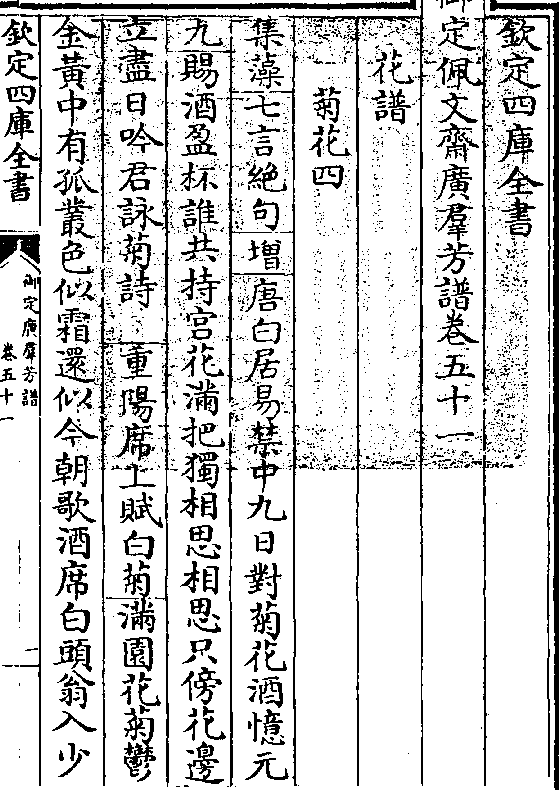 欽定四庫全書
御定佩文齋廣羣芳譜卷五十一
花譜
菊花四
集藻七言絶句増唐白居易禁中九日對菊花酒憶元
九賜酒盈杯誰共持宮花滿把獨相思相思只傍花邊
立盡日吟君詠菊詩 重陽席上賦白菊滿園花菊鬱
金黃中有孤叢色似霜還似今朝歌酒席白頭翁入少
欽定四庫全書
御定廣羣芳譜
卷五十一
一